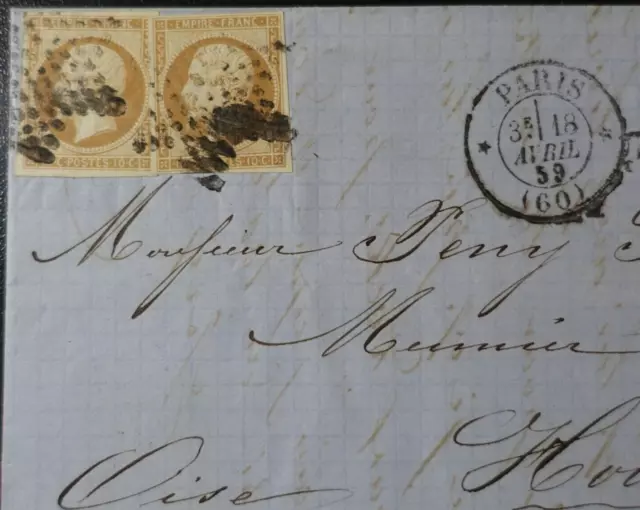 EMPIRE FRANC
EMPIRE FRANC
POSTES 10 C
POSTES 10 C
PARIS
3E 18
AVRIL
59
(60)
Monsieur
Meunier
Oise